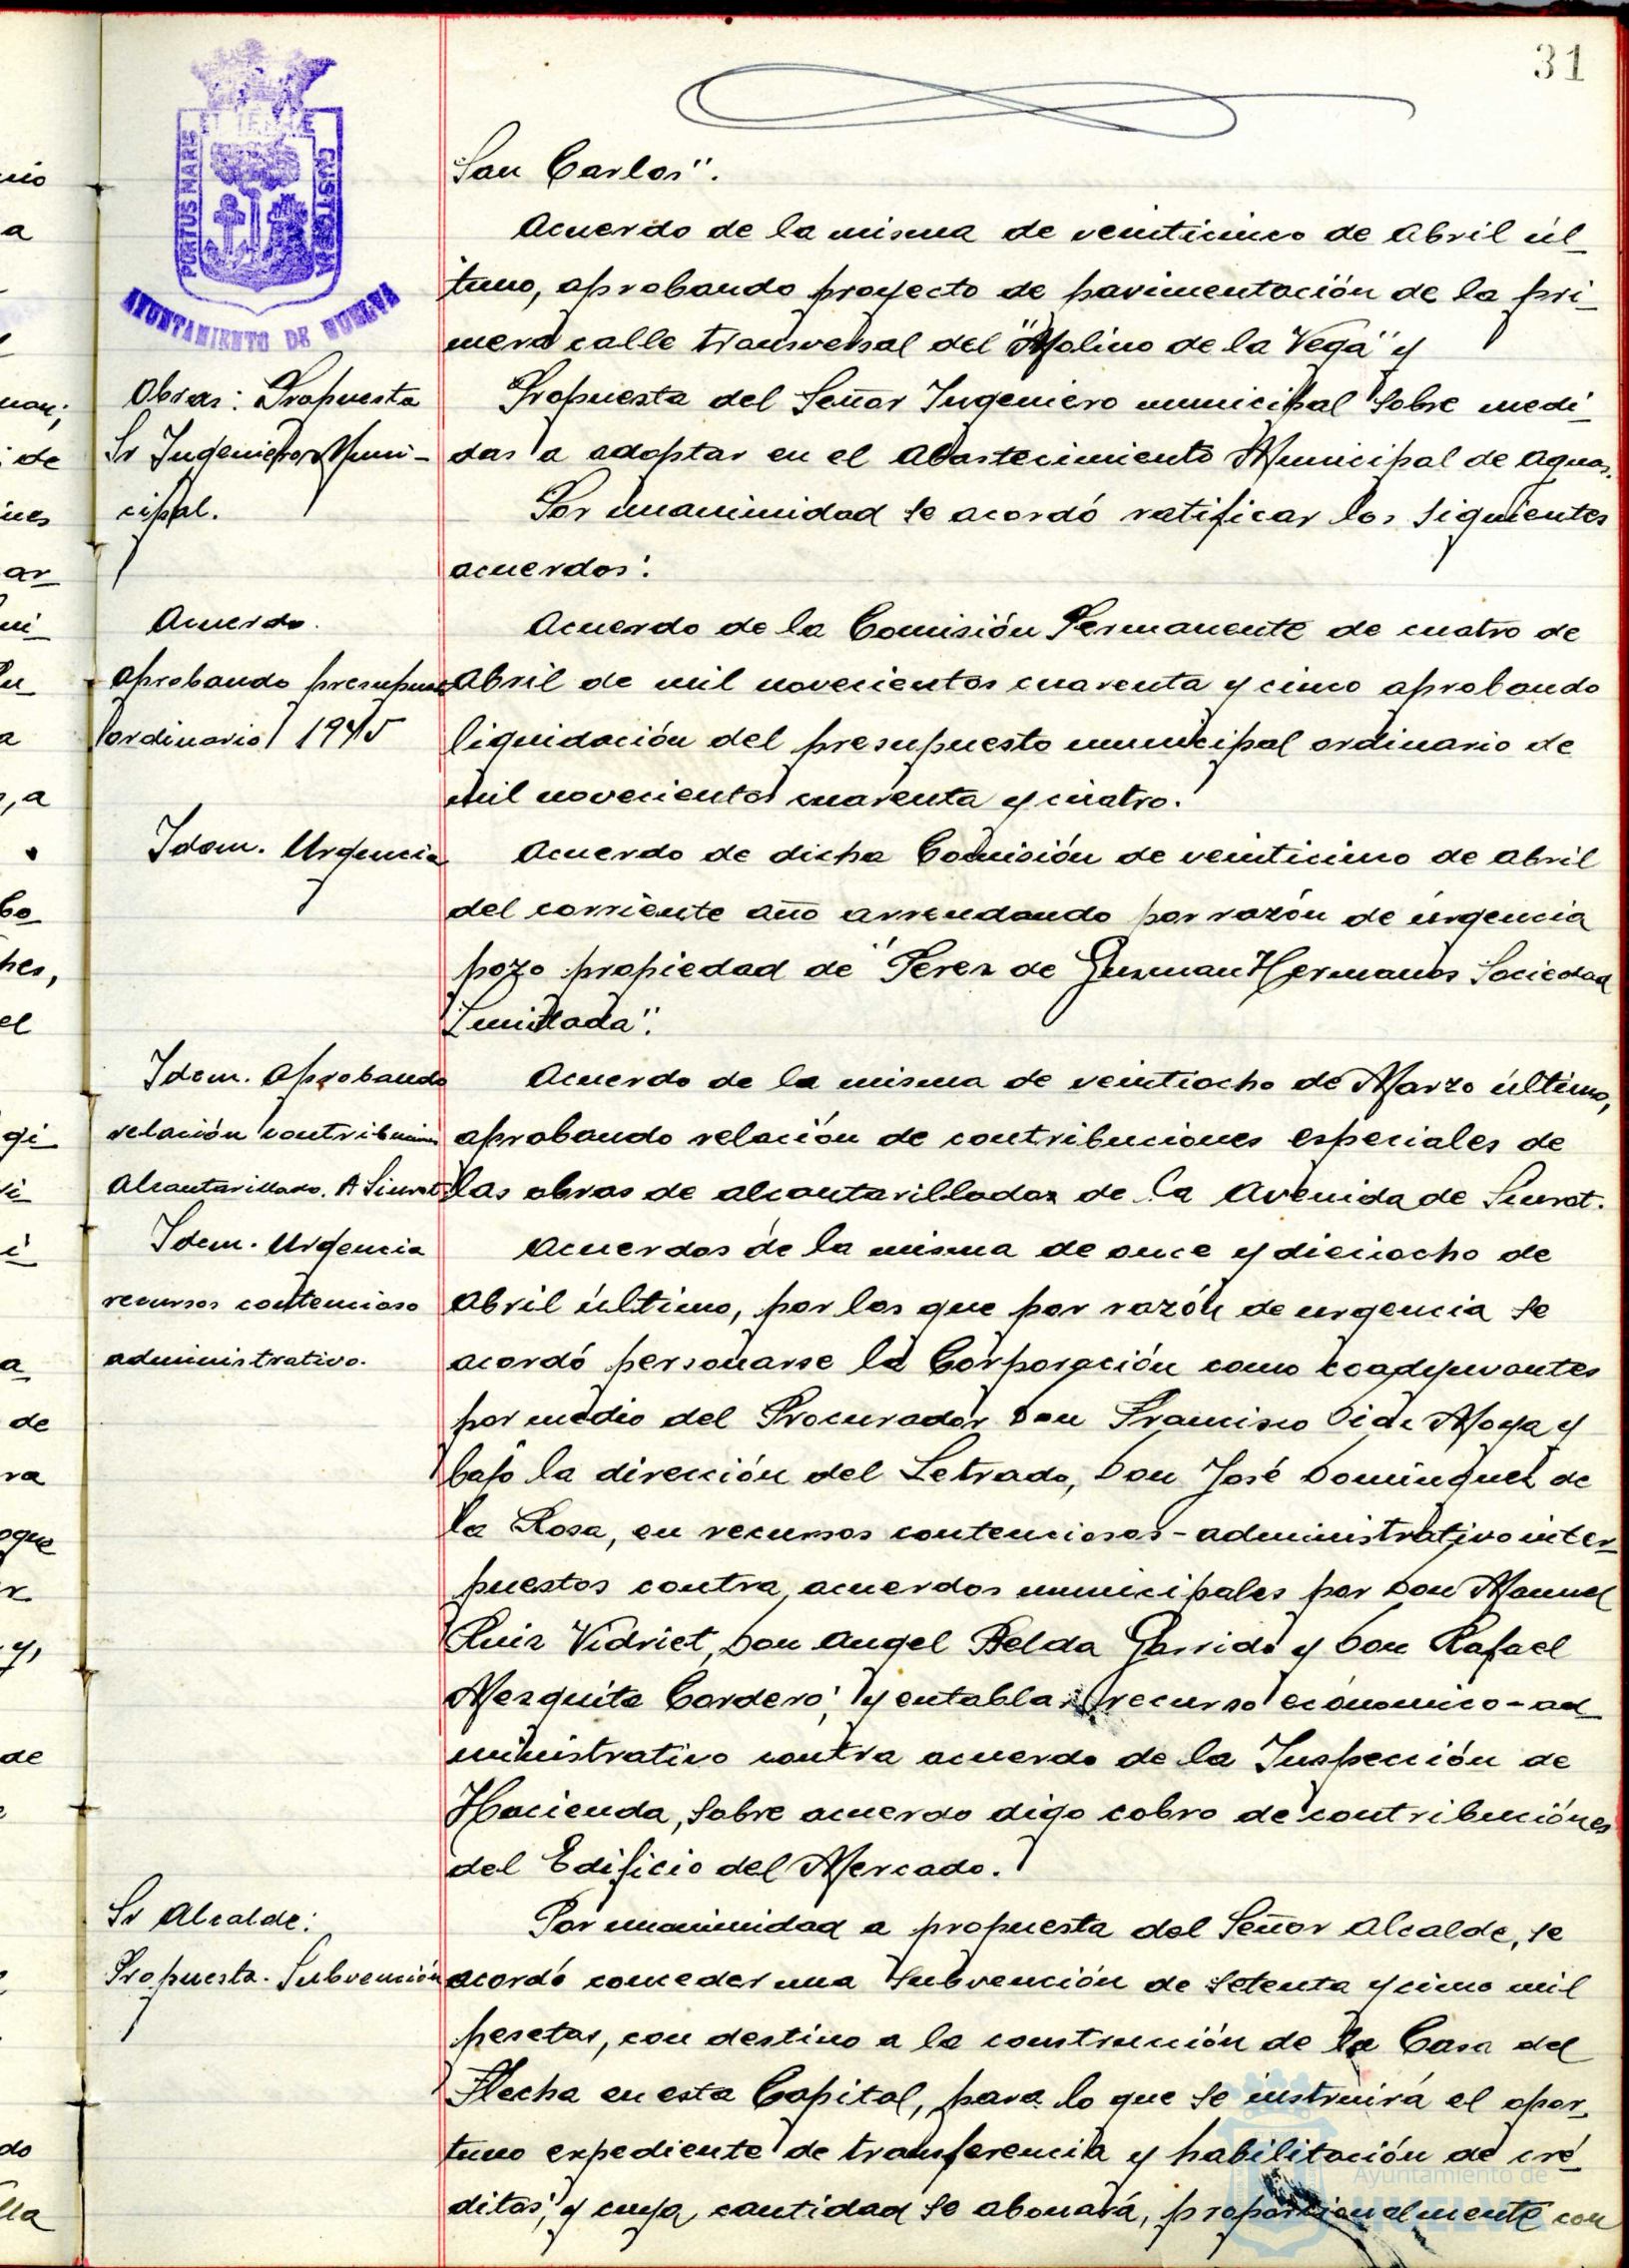 31
PORTUS MARIS ET TERRAE CUSTODIA
AYUNTAMIENTO DE HUELVA
San Carlos".
Acuerdo de la misma de veinticinco de Abril úl-
timo, aprobando proyecto de pavimentación de la pri-
mera calle transversal del "Molino de la Vega" y
Obras: Propuesta
Sr Ingeniero Muni-
cipal.
Propuesta del Señor Ingeniero municipal sobre medi-
das a adoptar en el Abastecimiento Municipal de Aguas.
Por unanimidad se acordó ratificar los siguientes
acuerdos:
Acuerdo.
aprobando presupues
ordinario 1945
Acuerdo de la Comisión Permanente de cuatro de
Abril de mil novecientos cuarenta y cinco aprobando
liquidación del presupuesto municipal ordinario de
mil novecientos cuarenta y cuatro.
Idem. Urgencia
Acuerdo de dicha Comisión de veinticinco de Abril
del corriente año arrendando por razón de urgencia
pozo propiedad de "Perez de Guzman Hermanos Sociedad
Limitada".
Idem. Aprobando
relación contribucion
Alcantarillado. A
Acuerdo de la misma de veintiocho de Marzo último,
aprobando relación de contribuciones especiales de
las obras de alcantarillados de la Avenida de
Idem. Urgencia
recursos contencioso
administrativo.
Acuerdos de la misma de once y dieciocho de
Abril último, por los que por razón de urgencia se
acordó personarse la Corporación como coadyuvantes
por medio del Procurador Don Francisco Diaz Moya y
bajo la dirección del Letrado, Don José Dominguez de
la Rosa, en recursos contenciosos-administrativo inter-
puestos contra acuerdos municipales por Don Manuel
Ruiz Vidriet, Don Angel Belda Garrido y Don Rafael
Mezquita Cordero; y entablar recurso económico-ad-
ministrativo contra acuerdo de la Inspección de
Hacienda, sobre acuerdo digo cobro de contribuciónes
del Edificio del Mercado.
Sr Alcalde:
Propuesta. Subvención
Por unanimidad a propuesta del Señor Alcalde, se
acordó conceder una subvención de setenta y cinco mil
pesetas, con destino a la construcción de la Casa del
Flecha en esta Capital, para lo que se instruirá el opor-
tuno expediente de transferencia y habilitación de cré-
ditos; y cuya cantidad se abonará, proporcionalmente con
Ayuntamiento de
HUELVA